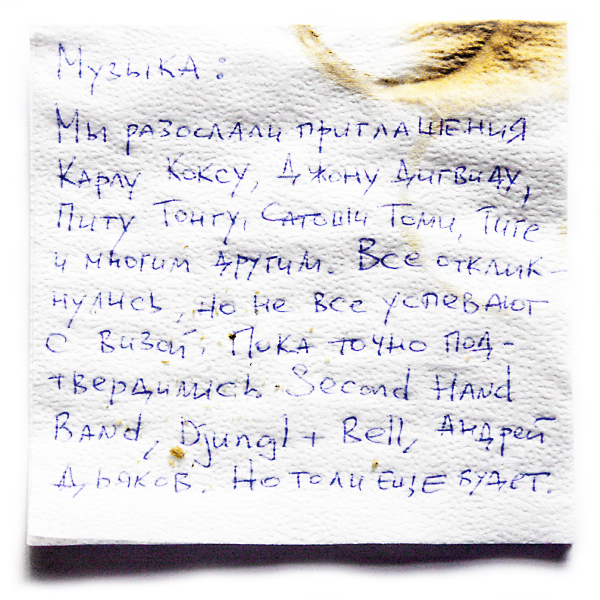 Музыка:
Мы разослали приглашения
Карлу Коксу, Джону Дигвиду,
Питу Тонгу, Сатоши Томи, Тиге
и многим другим. Все отклик-
нулись, но не все успевают
с визой. Пока точно под-
твердились Second Hand
Band, Djungl + Bell, Андрей
Дьяков. Но то ли еще будет.